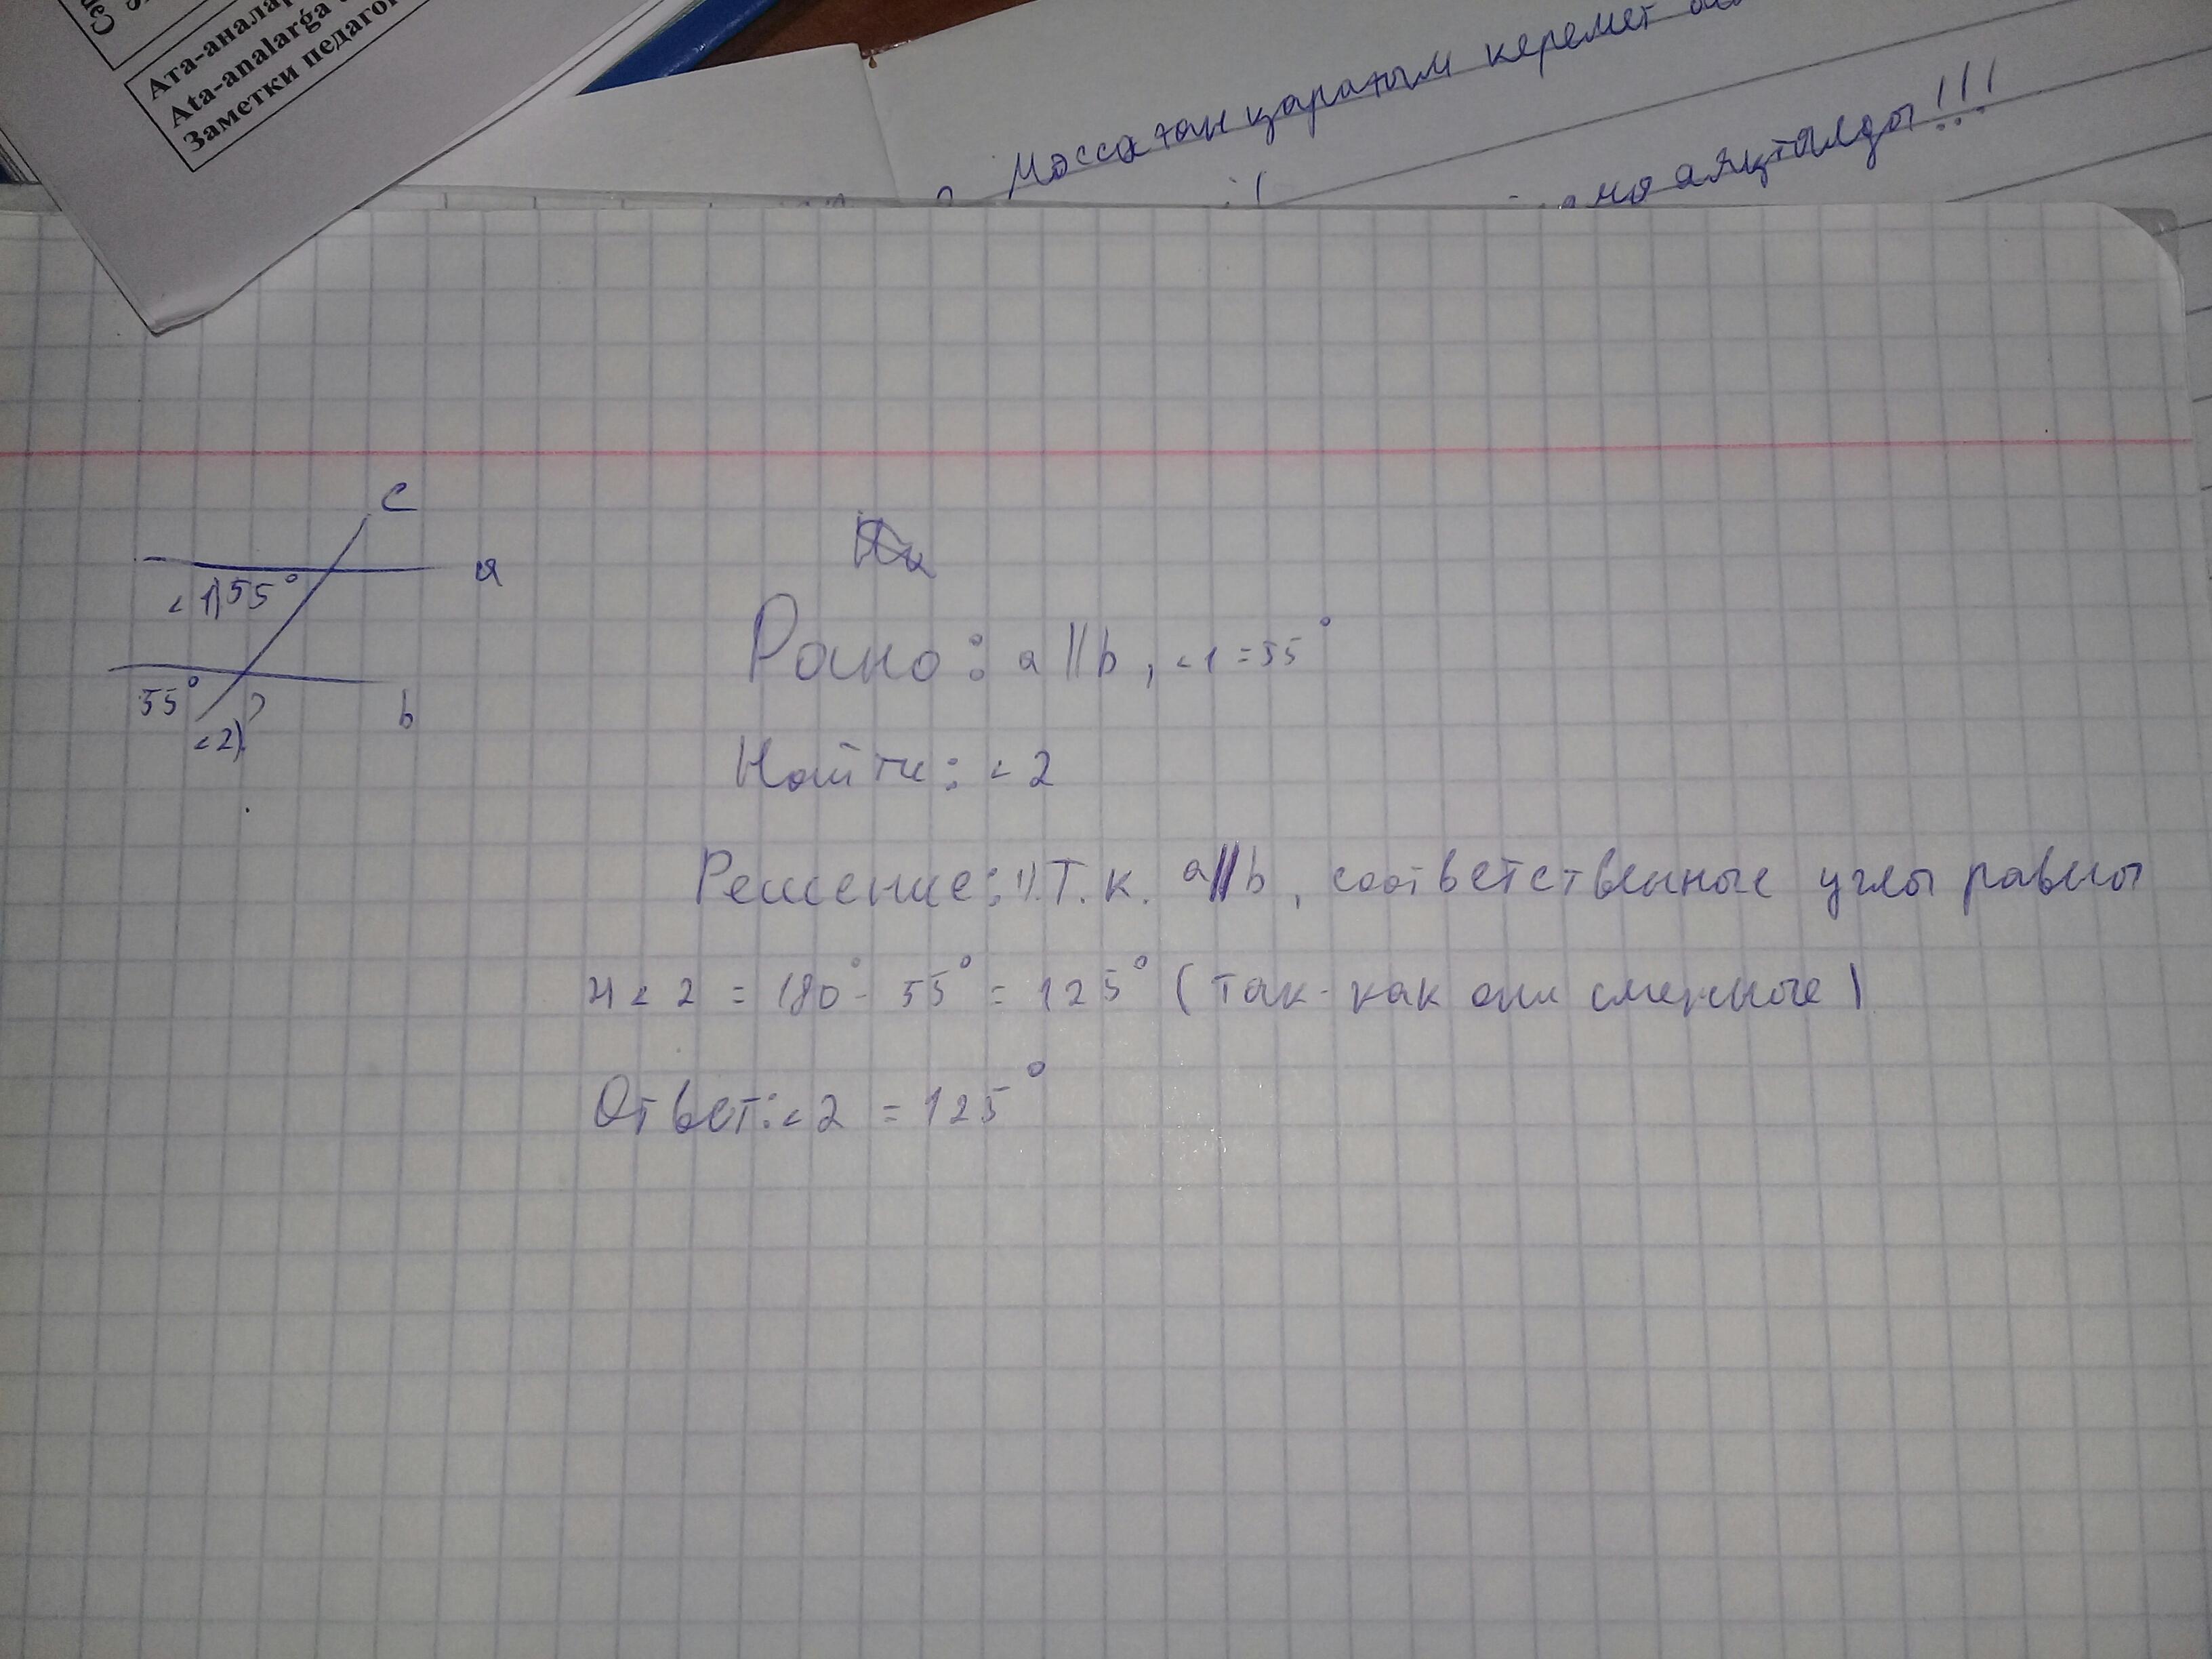 Ата-анала
Ata-analarga
Заметки педаго
Моссаған қаратым керемет
аяқталды!!!
c
a
<1)55°
55°
b
<2)
Дано: a||b, <1=55°
Найти: <2
Решение: 1). Т.к. a||b, соответственные углы равны
2) <2 = 180°- 55° = 125° (так-как они смежные)
Ответ: <2 = 125°